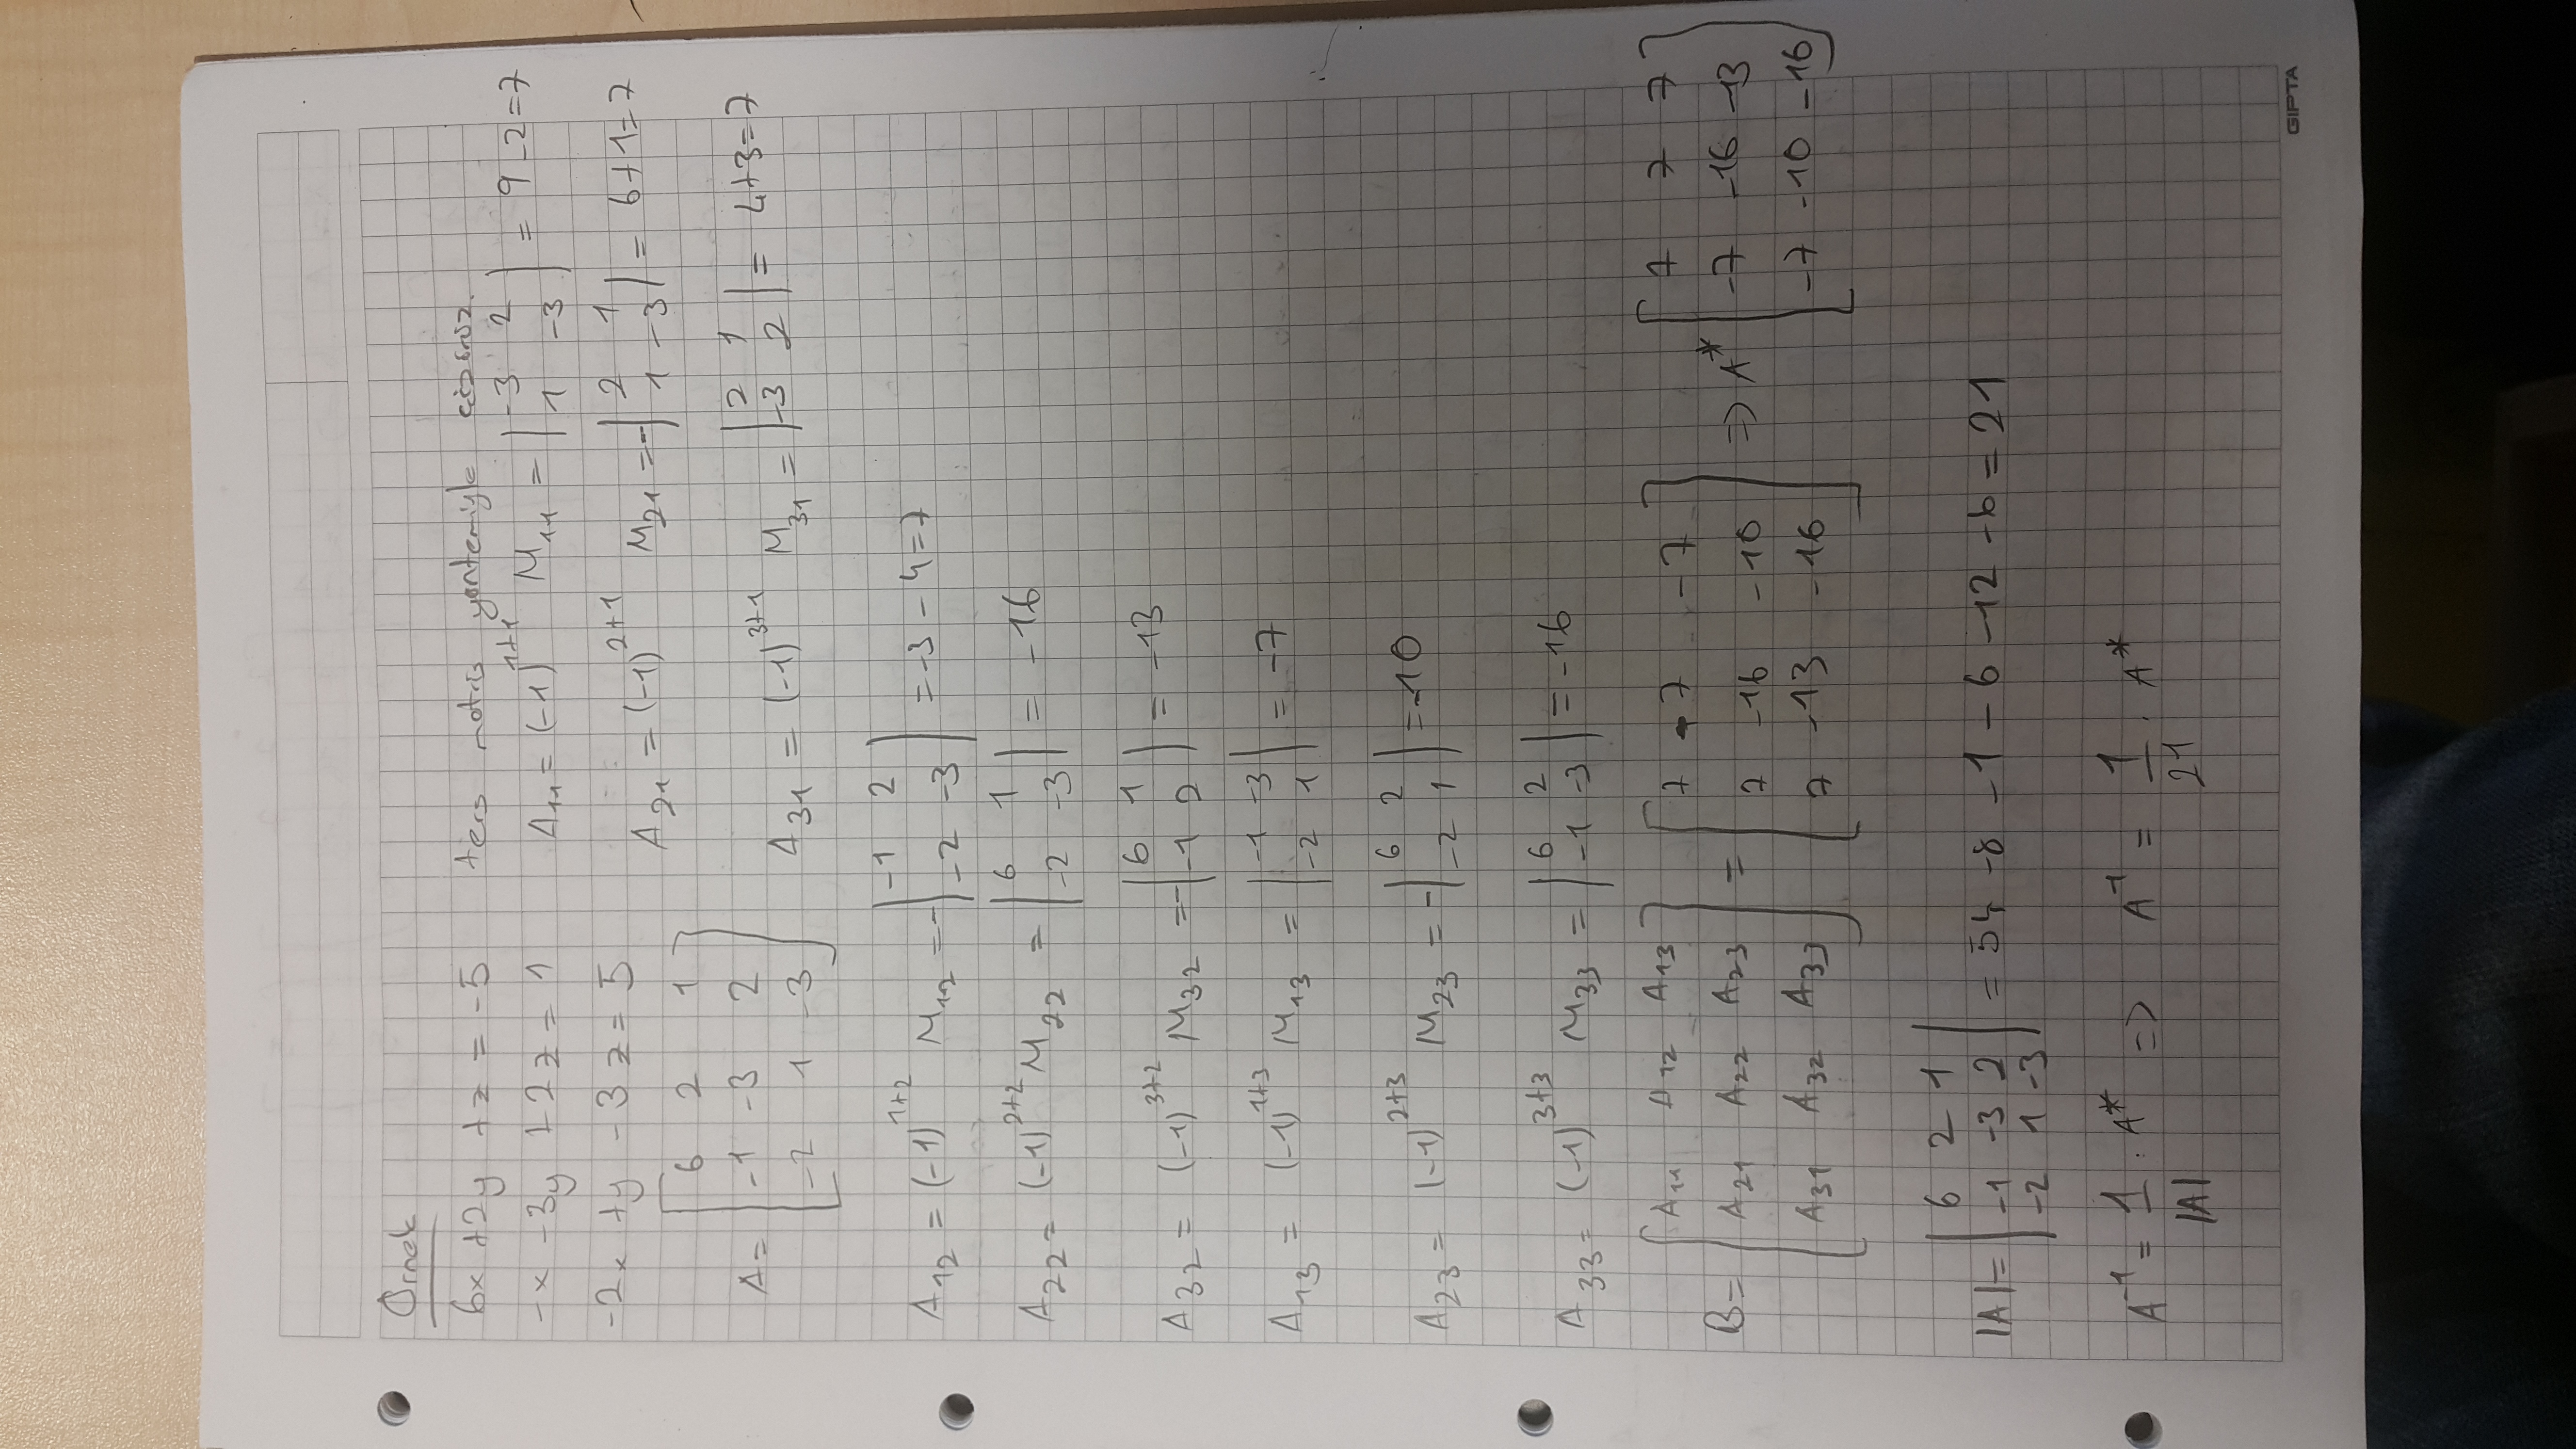 Örnek
6x +2y +z = -5 ters matris yöntemiyle çözünüz.
-x -3y +2z = 1 A11 = (-1)^1+1 M11 = |-3 2; 1 -3| = 9-2=7
-2x +y -3z = 5 A21 = (-1)^2+1 M21 = -|2 1; 1 -3| = 6+1=7
A = [6 2 1; -1 -3 2; -2 1 -3] A31 = (-1)^3+1 M31 = |2 1; -3 2| = 4+3=7
A12 = (-1)^1+2 M12 = -|-1 2; -2 -3| = -3-4=7
A22 = (-1)^2+2 M22 = |6 1; -2 -3| = -16
A32 = (-1)^3+2 M32 = -|6 1; -1 2| = -13
A13 = (-1)^1+3 M13 = |-1 -3; -2 1| = -7
A23 = (-1)^2+3 M23 = -|6 2; -2 1| = -10
A33 = (-1)^3+3 M33 = |6 2; -1 -3| = -16
B = [A11 A12 A13; A21 A22 A23; A31 A32 A33] = [7 -7 -7; 7 -16 -10; 7 -13 -16] => A* [7 7 7; -7 -16 -13; -7 -10 -16]
|A| = |6 2 1; -1 -3 2; -2 1 -3| = 54 -8 -1 -6 -12 -6 = 21
A^-1 = 1/|A| . A* => A^-1 = 1/21 . A*
GIPTA